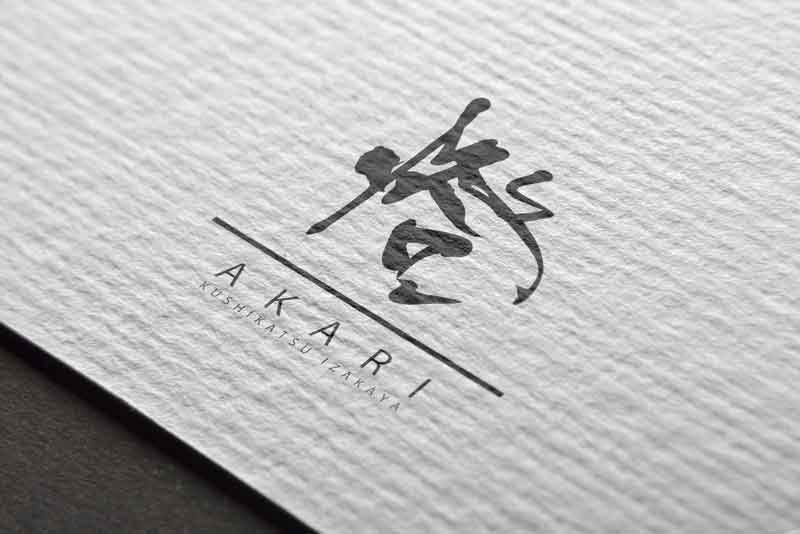 燈
AKARI
KUSHIKATSU IZAKAYA